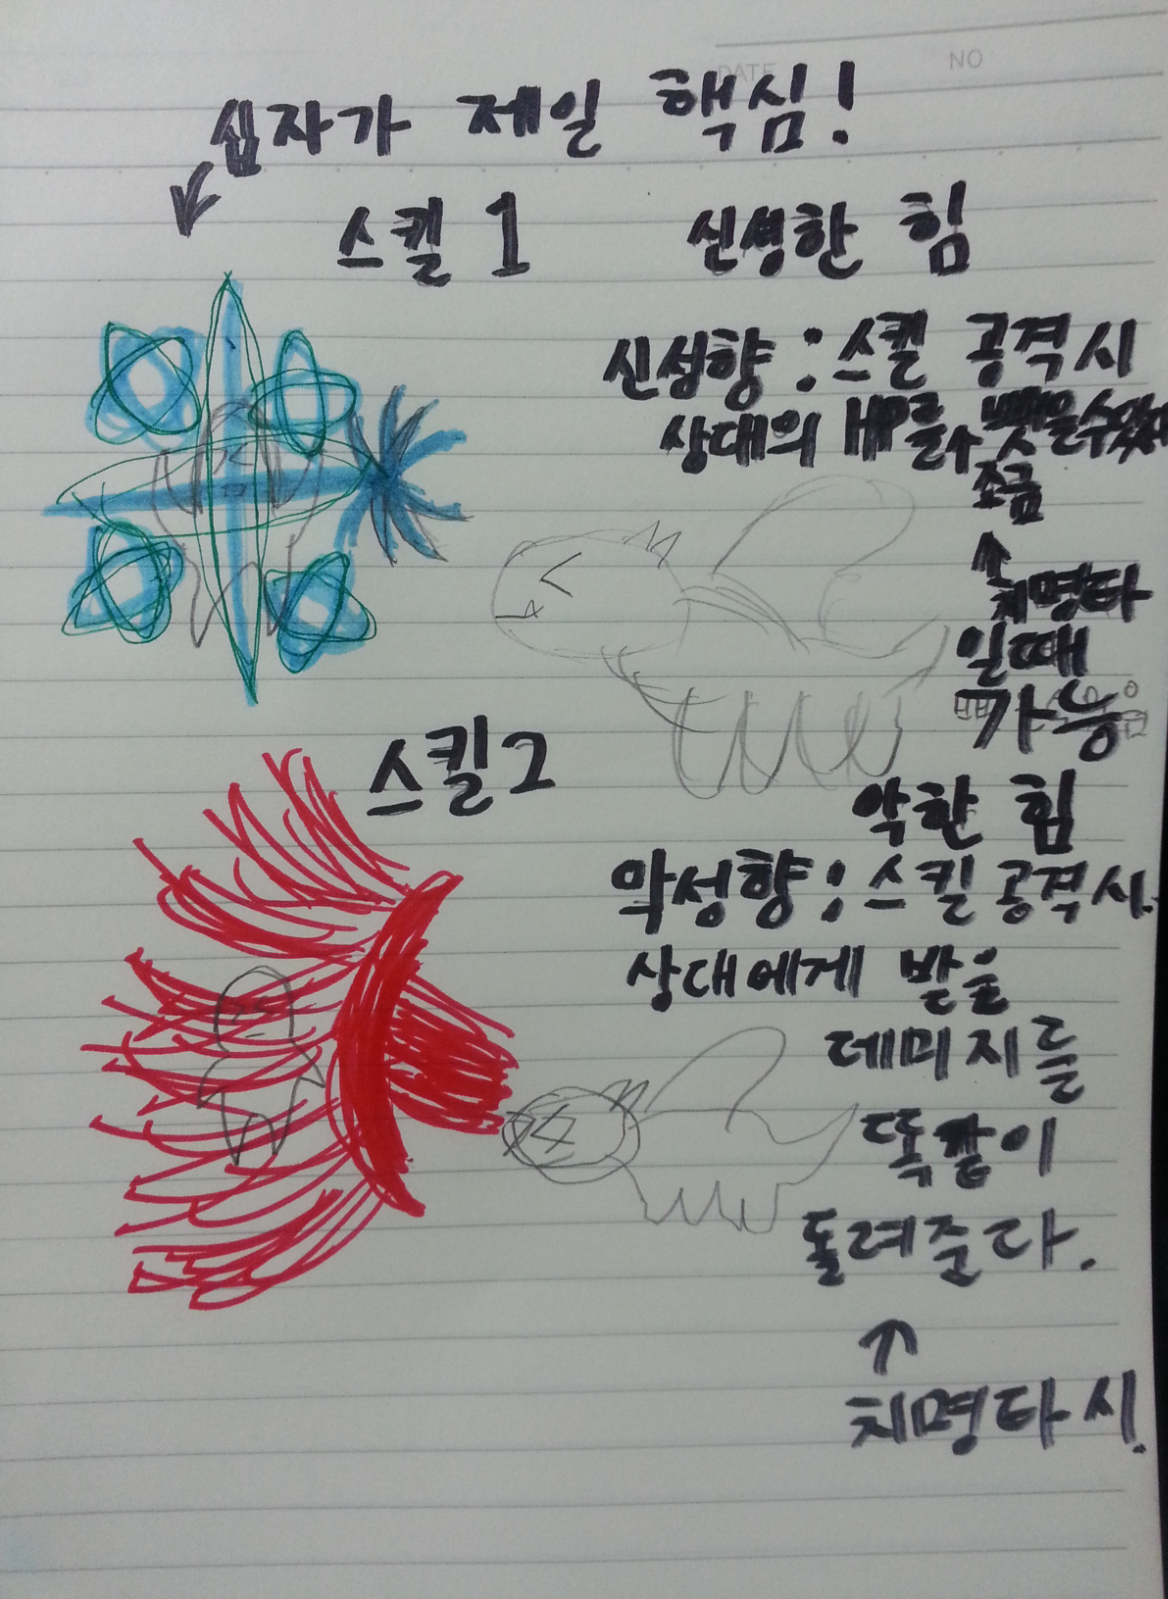 DATE
NO
십자가 제일 핵심!
스킬 1 신성한 힘
신성향 : 스킬 공격시
상대의 HP를 빼을수있다
조금
치명타
일때
가능
스킬2
악한 힘
악성향 : 스킬 공격시.
상대에게 받을
데미지를
똑같이
돌려준다.
치명타 시.